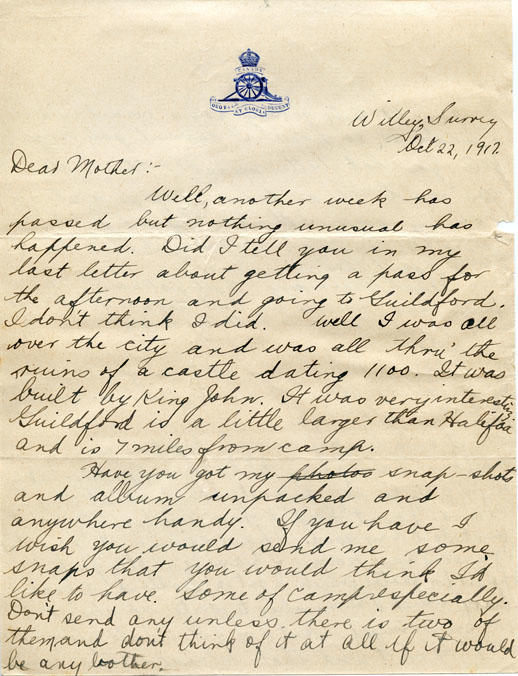 CANADA
QUO FAS ET GLORIA DUCUNT
Witley, Surrey
Oct 22, 1917.
Dear Mother:-
Well, another week has
passed but nothing unusual has
happened. Did I tell you in my
last letter about getting a pass for
the afternoon and going to Guildford.
I don't think I did. Well I was all
over the city and was all thru' the
ruins of a castle dating 1100. It was
built by King John. It was very interesting
Guildford is a little larger than Halifax
and is 7 miles from camp.
Have you got my photos snap-shots
and album unpacked and
anywhere handy. If you have I
wish you would send me some
snaps that you would think I'd
like to have. Some of camp especially.
Don't send any unless there is two of
them, and don't think of it at all if it would
be any bother.